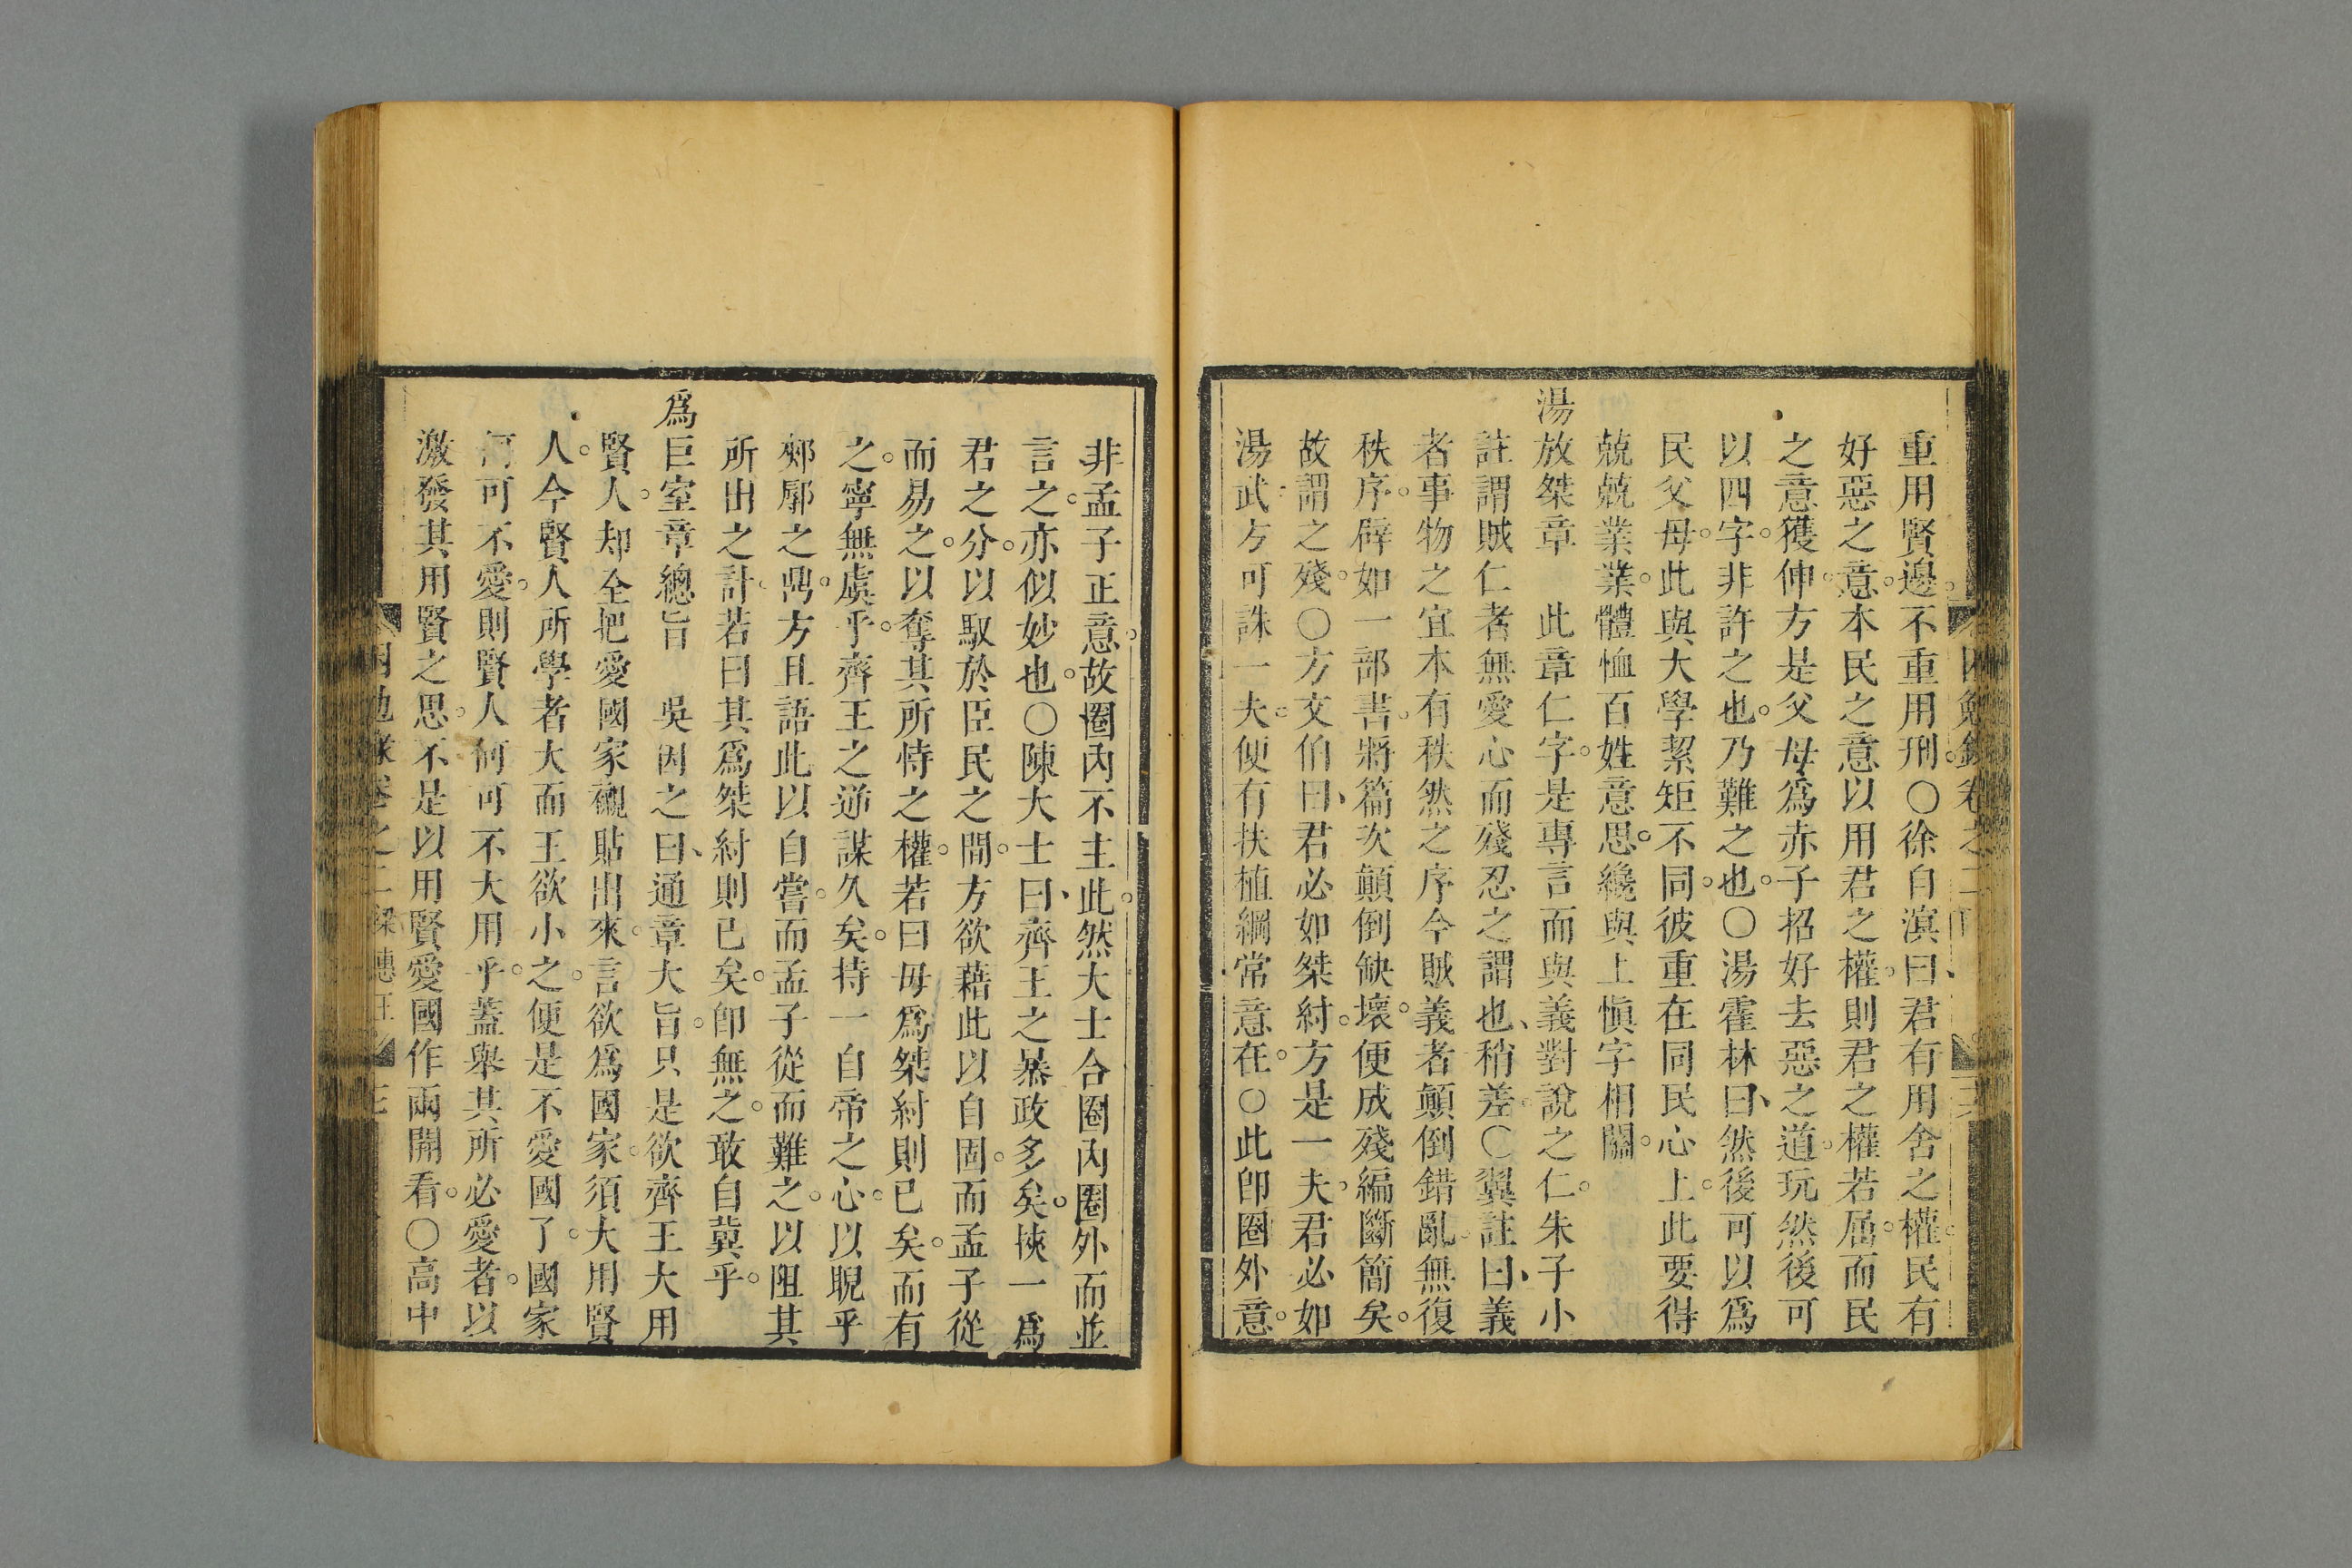 重用賢邊。不重用刑。〇徐自溟曰、君有用舍之權。民有
好惡之意。本民之意以用君之權。則君之權若屈。而民
之意獲伸。方是父母爲赤子招好去惡之道。玩然後可
以四字。非許之也。乃難之也。〇湯霍林曰、然後可以爲
民父母。此與大學絜矩不同。彼重在同民心上。此要得
兢兢業業。體恤百姓意思。纔與上愼字相關。
湯放桀章　此章仁字。是專言而與義對說之仁。朱子小
註謂賊仁者無愛心而殘忍之謂也、稍差。〇翼註曰、義
者事物之宜本有秩然之序今賊義者顛倒錯亂。無復
秩序。辟如一部書。將篇次顛倒缺壞。便成殘編斷簡矣。
故謂之殘。〇方文伯曰、君必如桀紂。方是一夫。君必如
湯武。方可誅一夫。便有扶植綱常意在。〇此卽圈外意。
非孟子正意。故圈內不主此。然大士合圈內圈外而並
言之。亦似妙也。〇陳大士曰、齊王之暴政多矣。挾一爲
君之分。以馭於臣民之間。方欲藉此以自固。而孟子從
而易之。以奪其所恃之權。若曰毋爲桀紂則已矣。而有
之。寧無虞乎。齊王之逆謀久矣。持一自帝之心。以睨乎
郟鄏之鼎。方且語此以自嘗。而孟子從而難之。以阻其
所出之計。若曰其爲桀紂則已矣。卽無之。敢自冀乎。
爲巨室章總旨　吳因之曰、通章大旨。只是欲齊王大用
賢人。却全把愛國家襯貼出來。言欲爲國家。須大用賢
人。今賢人所學者大而王欲小之。便是不愛國了。國家
何可不愛。則賢人何可不大用乎。蓋舉其所必愛者。以
激發其用賢之思。不是以用賢愛國作兩開看。〇高中